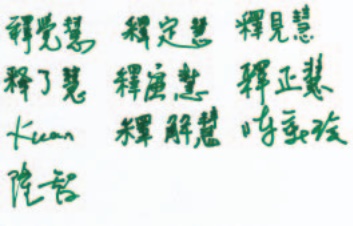 釋覺慧 釋定慧 釋見慧
釋了慧 釋廣慧 釋正慧
Kuan 釋解慧
隆智